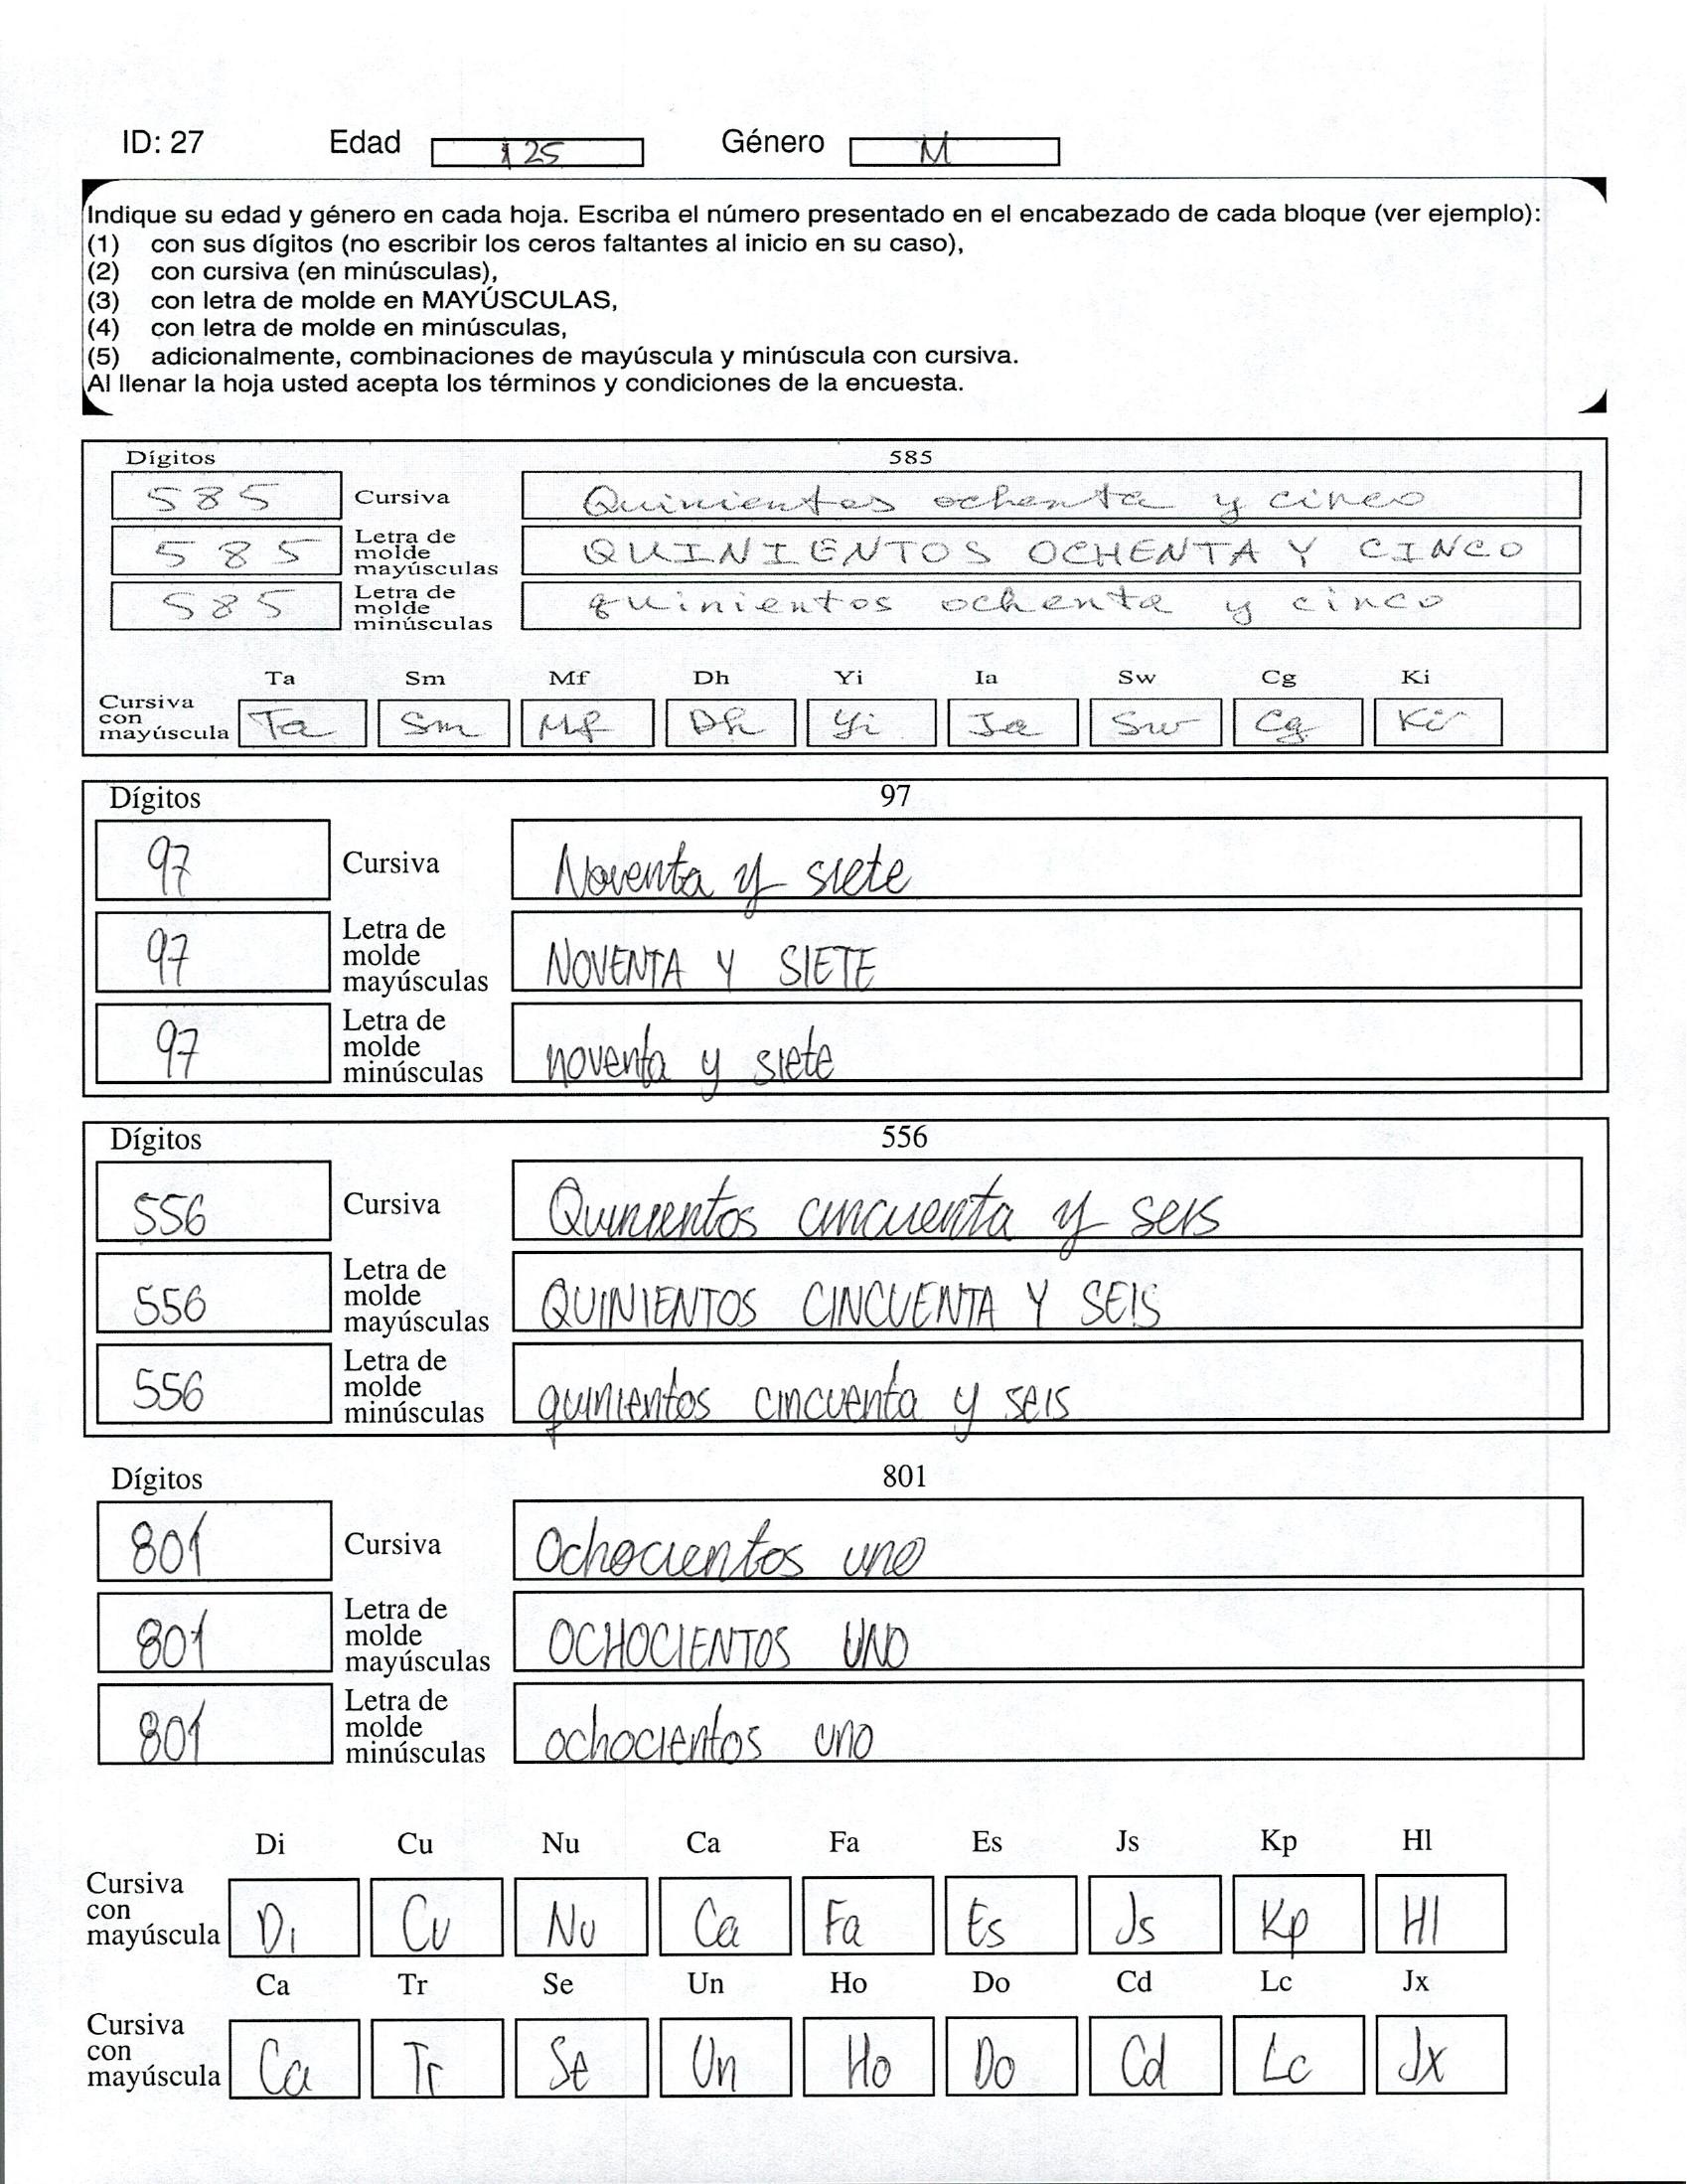 ID: 27 Edad 25 Género M
Indique su edad y género en cada hoja. Escriba el número presentado en el encabezado de cada bloque (ver ejemplo):
(1) con sus dígitos (no escribir los ceros faltantes al inicio en su caso),
(2) con cursiva (en minúsculas),
(3) con letra de molde en MAYÚSCULAS,
(4) con letra de molde en minúsculas,
(5) adicionalmente, combinaciones de mayúscula y minúscula con cursiva.
Al llenar la hoja usted acepta los términos y condiciones de la encuesta.
Dígitos 585
585 Cursiva Quinientos ochenta y cinco
585 Letra de molde mayúsculas QUINIENTOS OCHENTA Y CINCO
585 Letra de molde minúsculas quinientos ochenta y cinco
Ta Sm Mf Dh Yi Ia Sw Cg Ki
Cursiva con mayúscula Ta Sm Mf Dh Yi Ia Sw Cg Ki
Dígitos 97
97 Cursiva Noventa y siete
97 Letra de molde mayúsculas NOVENTA Y SIETE
97 Letra de molde minúsculas noventa y siete
Dígitos 556
556 Cursiva Quinientos cincuenta y seis
556 Letra de molde mayúsculas QUINIENTOS CINCUENTA Y SEIS
556 Letra de molde minúsculas quinientos cincuenta y seis
Dígitos 801
801 Cursiva Ochocientos uno
801 Letra de molde mayúsculas OCHOCIENTOS UNO
801 Letra de molde minúsculas ochocientos uno
Di Cu Nu Ca Fa Es Js Kp Hl
Cursiva con mayúscula Di Cu Nu Ca Fa Es Js Kp Hl
Ca Tr Se Un Ho Do Cd Lc Jx
Cursiva con mayúscula Ca Tr Se Un Ho Do Cd Lc Jx